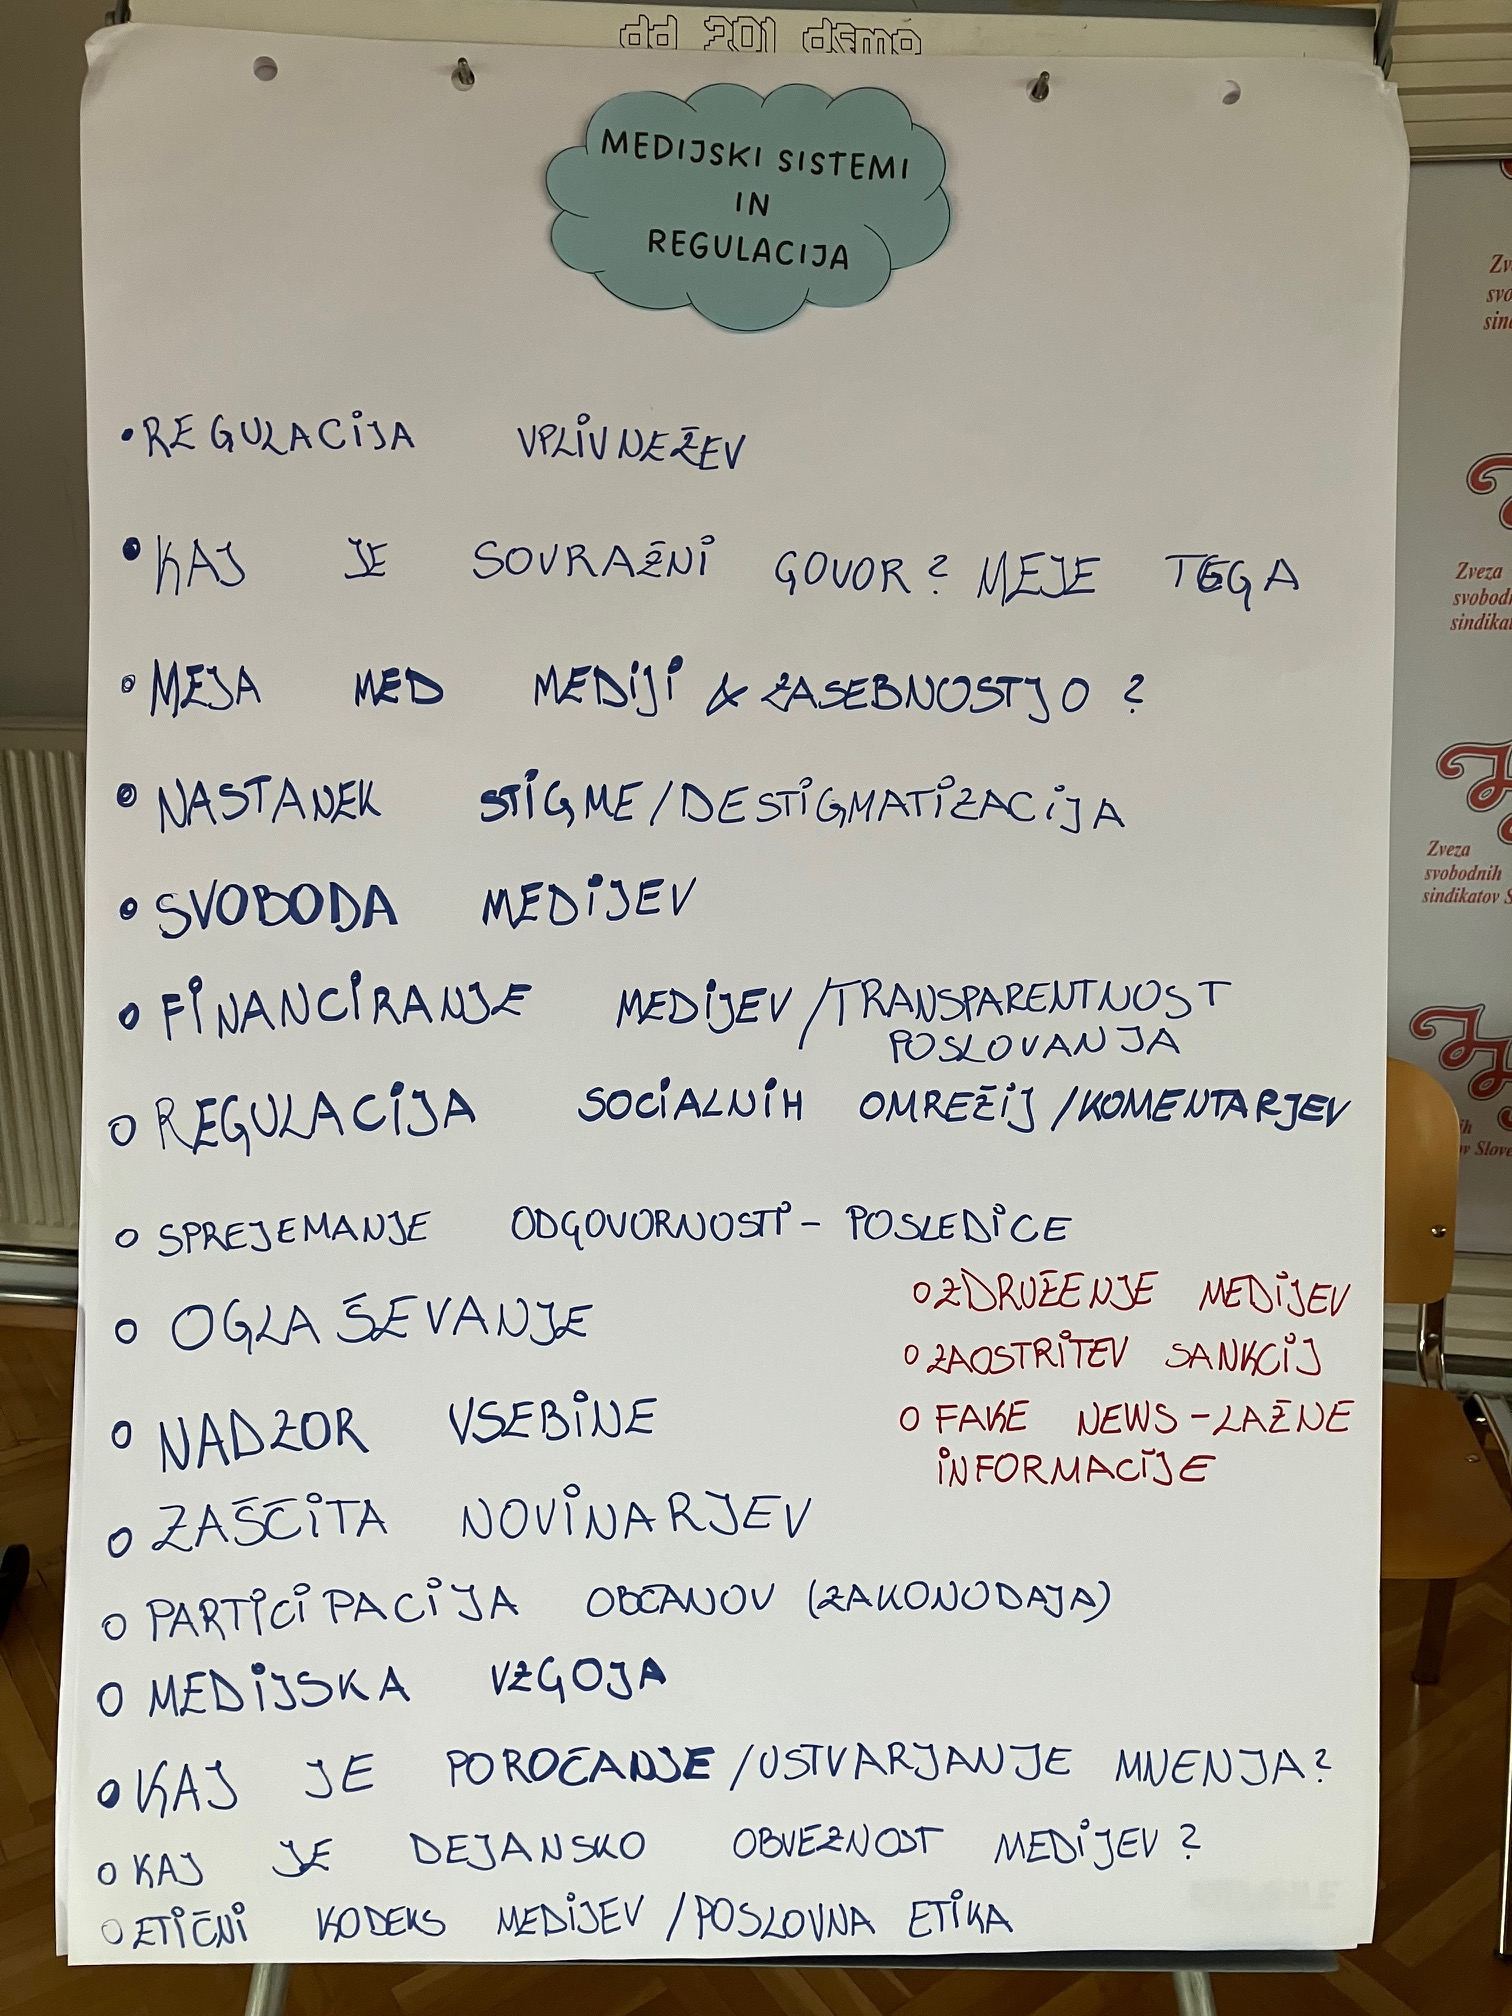 dd 201 demo
MEDIJSKI SISTEMI
IN
REGULACIJA
• REGULACIJA VPLIVNEŽEV
• KAJ JE SOVRAŽNI GOVOR? MEJE TEGA
• MEJA MED MEDIJI & ZASEBNOSTJO?
• NASTANEK STIGME/DESTIGMATIZACIJA
• SVOBODA MEDIJEV
• FINANCIRANJE MEDIJEV/TRANSPARENTNOST
POSLOVANJA
• REGULACIJA SOCIALNIH OMREŽIJ/KOMENTARJEV
• SPREJEMANJE ODGOVORNOSTI - POSLEDICE
• OGLAŠEVANJE
• NADZOR VSEBINE
• ZAŠČITA NOVINARJEV
• PARTICIPACIJA OBČANOV (ZAKONODAJA)
• MEDIJSKA VZGOJA
• KAJ JE POROČANJE/USTVARJANJE MNENJA?
• KAJ JE DEJANSKO OBVEZNOST MEDIJEV?
• ETIČNI KODEKS MEDIJEV/POSLOVNA ETIKA
• ZDRUŽENJE MEDIJEV
• ZAOSTRITEV SANKCIJ
• FAKE NEWS - LAŽNE
INFORMACIJE
Zveza
svobodnih
sindikatov S